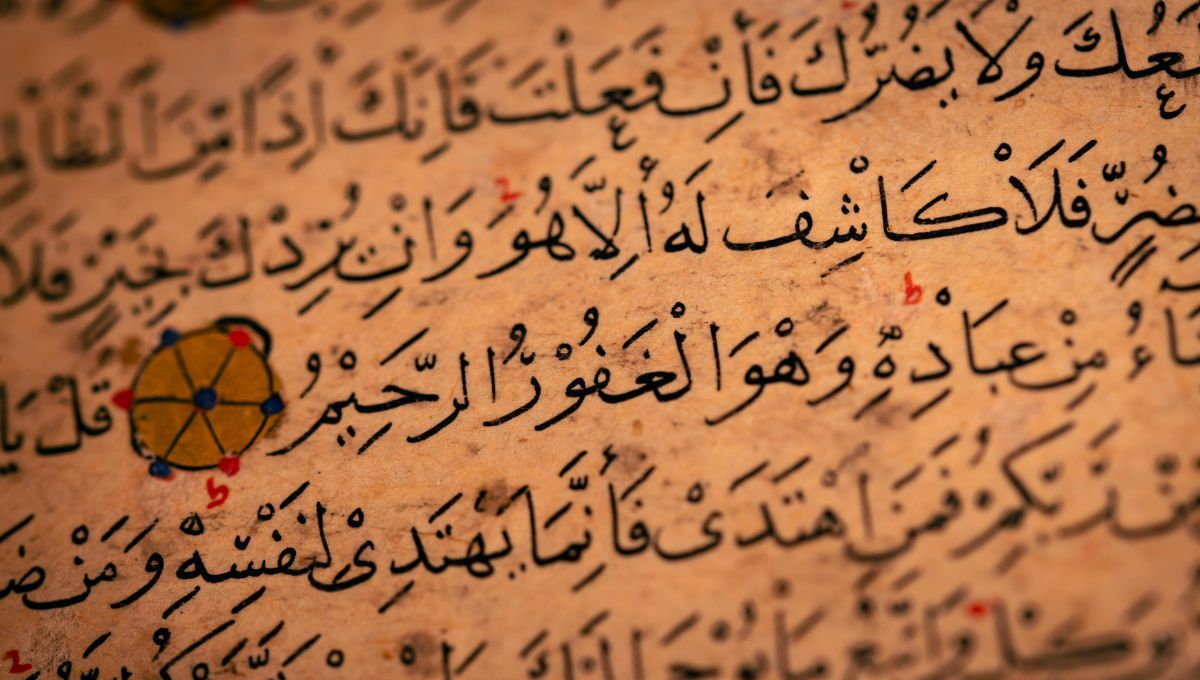 ينفعك ولا يضرك فان فعلت فانك اذا من الظالمين
بضر فلا كاشف له الا هو وان يردك بخير فلا
من عباده وهو الغفور الرحيم قل يا
من ربكم فمن اهتدى فانما يهتدي لنفسه ومن
واتبع ما يوحى اليك